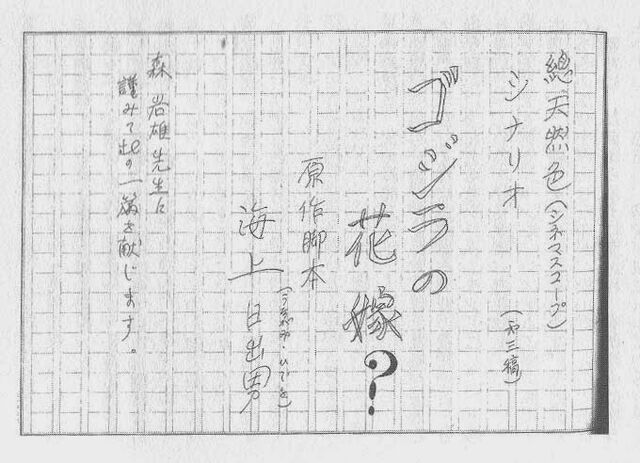 總天然色(シネマスコープ)
シナリオ
(第三稿)
ゴジラの
花嫁?
原作脚本
海上日出男
(うながみ・ひでを)
森岩雄先生に
謹みて此の一篇を献じます。